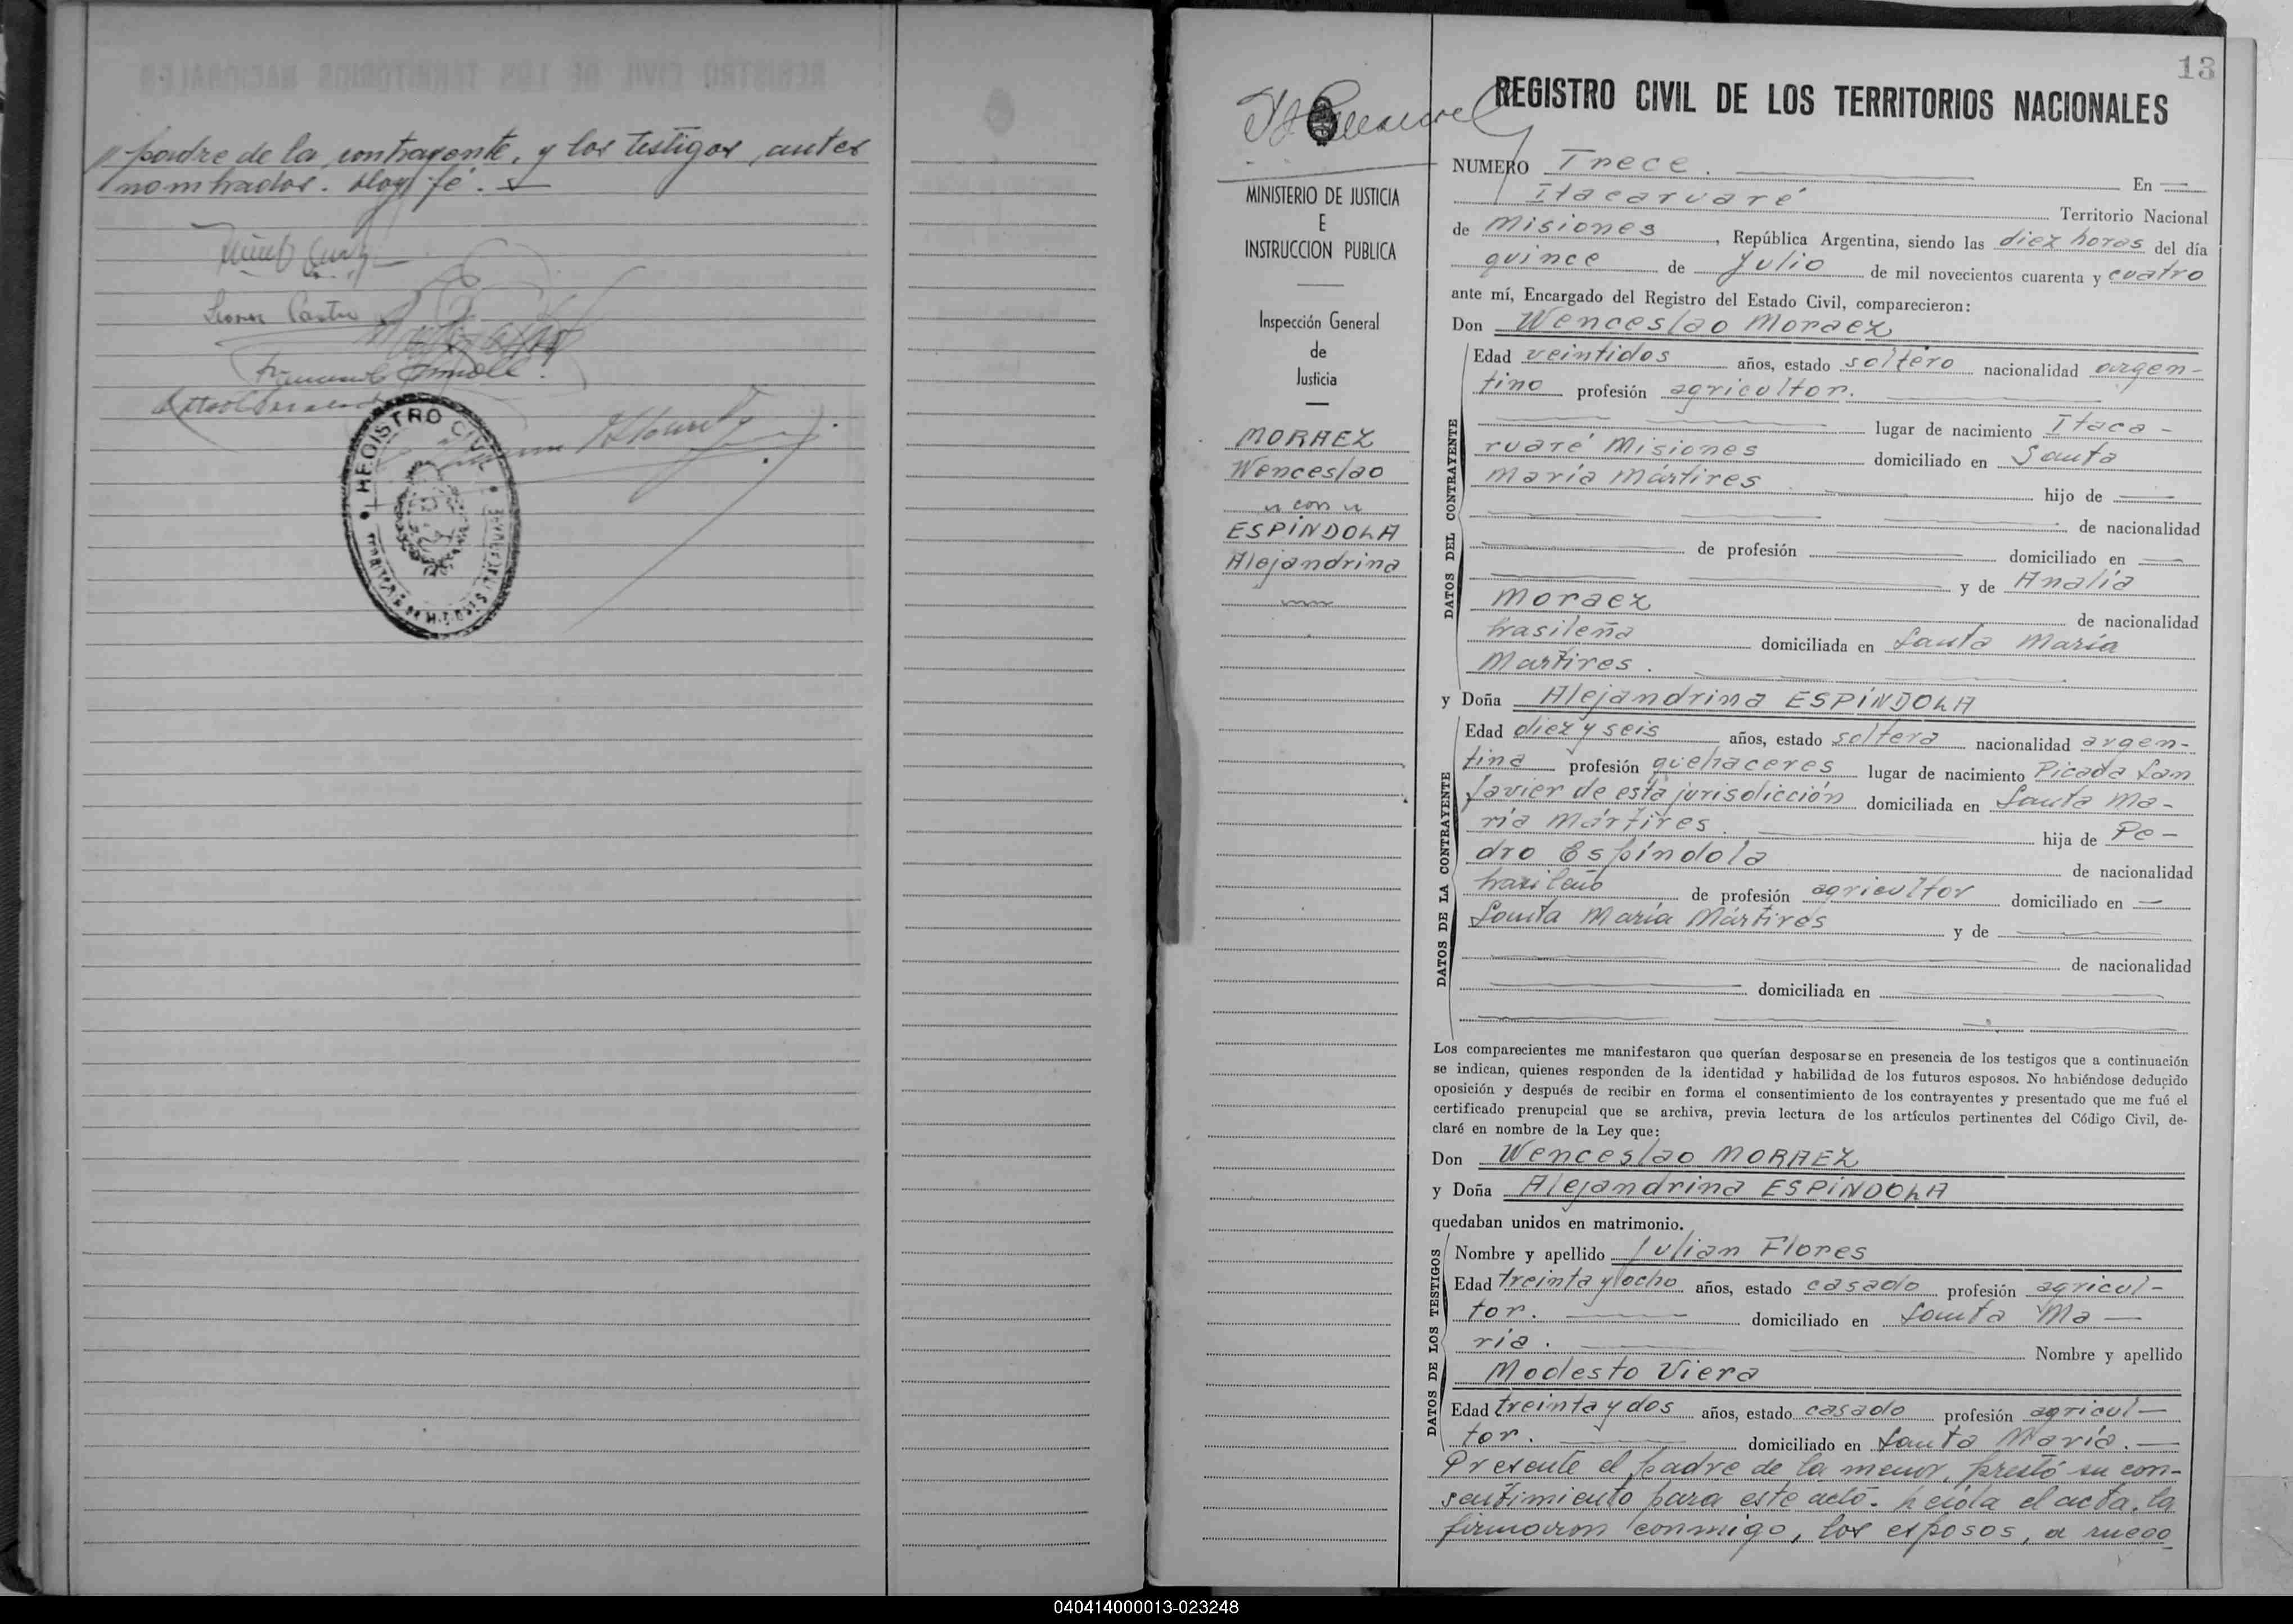 padre de la contrayente, y los testigos, antes
nombrados. doy fé.
Leonor Castro
REGISTRO CIVIL
13
REGISTRO CIVIL DE LOS TERRITORIOS NACIONALES
MINISTERIO DE JUSTICIA
E
INSTRUCCION PUBLICA
Inspección General
de
Justicia
MORAEZ
Wenceslao
" con "
ESPÍNDOLA
Alejandrina
NUMERO Trece. En
Itacaruaré Territorio Nacional
de Misiones, República Argentina, siendo las diez horas del día
quince de Julio de mil novecientos cuarenta y cuatro
ante mí, Encargado del Registro del Estado Civil, comparecieron:
Don Wenceslao Moraez
DATOS DEL CONTRAYENTE
Edad veintidos años, estado soltero nacionalidad argen-
tino profesión agricultor.
lugar de nacimiento Itaca-
ruaré Misiones domiciliado en Santa
María Mártires hijo de
de nacionalidad
de profesión domiciliado en
y de Analía
Moraez de nacionalidad
brasileña domiciliada en Santa María
Martires.
y Doña Alejandrina ESPÍNDOLA
DATOS DE LA CONTRAYENTE
Edad diez y seis años, estado soltera nacionalidad argen-
tina profesión quehaceres lugar de nacimiento Picada San
Javier de esta jurisdicción domiciliada en Santa Ma-
ría Mártires. hija de Pe-
dro Espíndola de nacionalidad
brasileño de profesión agricultor domiciliado en
Santa María Mártires y de
de nacionalidad
domiciliada en
Los comparecientes me manifestaron que querían desposarse en presencia de los testigos que a continuación
se indican, quienes responden de la identidad y habilidad de los futuros esposos. No habiéndose deducido
oposición y después de recibir en forma el consentimiento de los contrayentes y presentado que me fué el
certificado prenupcial que se archiva, previa lectura de los artículos pertinentes del Código Civil, de-
claré en nombre de la Ley que:
Don Wenceslao MORAEZ
y Doña Alejandrina ESPÍNDOLA
quedaban unidos en matrimonio.
DATOS DE LOS TESTIGOS
Nombre y apellido Julian Flores
Edad treinta y ocho años, estado casado profesión agricul-
tor. domiciliado en Santa Ma-
ría. Nombre y apellido
Modesto Viera
Edad treinta y dos años, estado casado profesión agricul-
tor. domiciliado en Santa María.
Presente el padre de la menor, prestó su con-
sentimiento para este acto. Leída el acta, la
firmaron conmigo, los esposos, a ruego
040414000013-023248